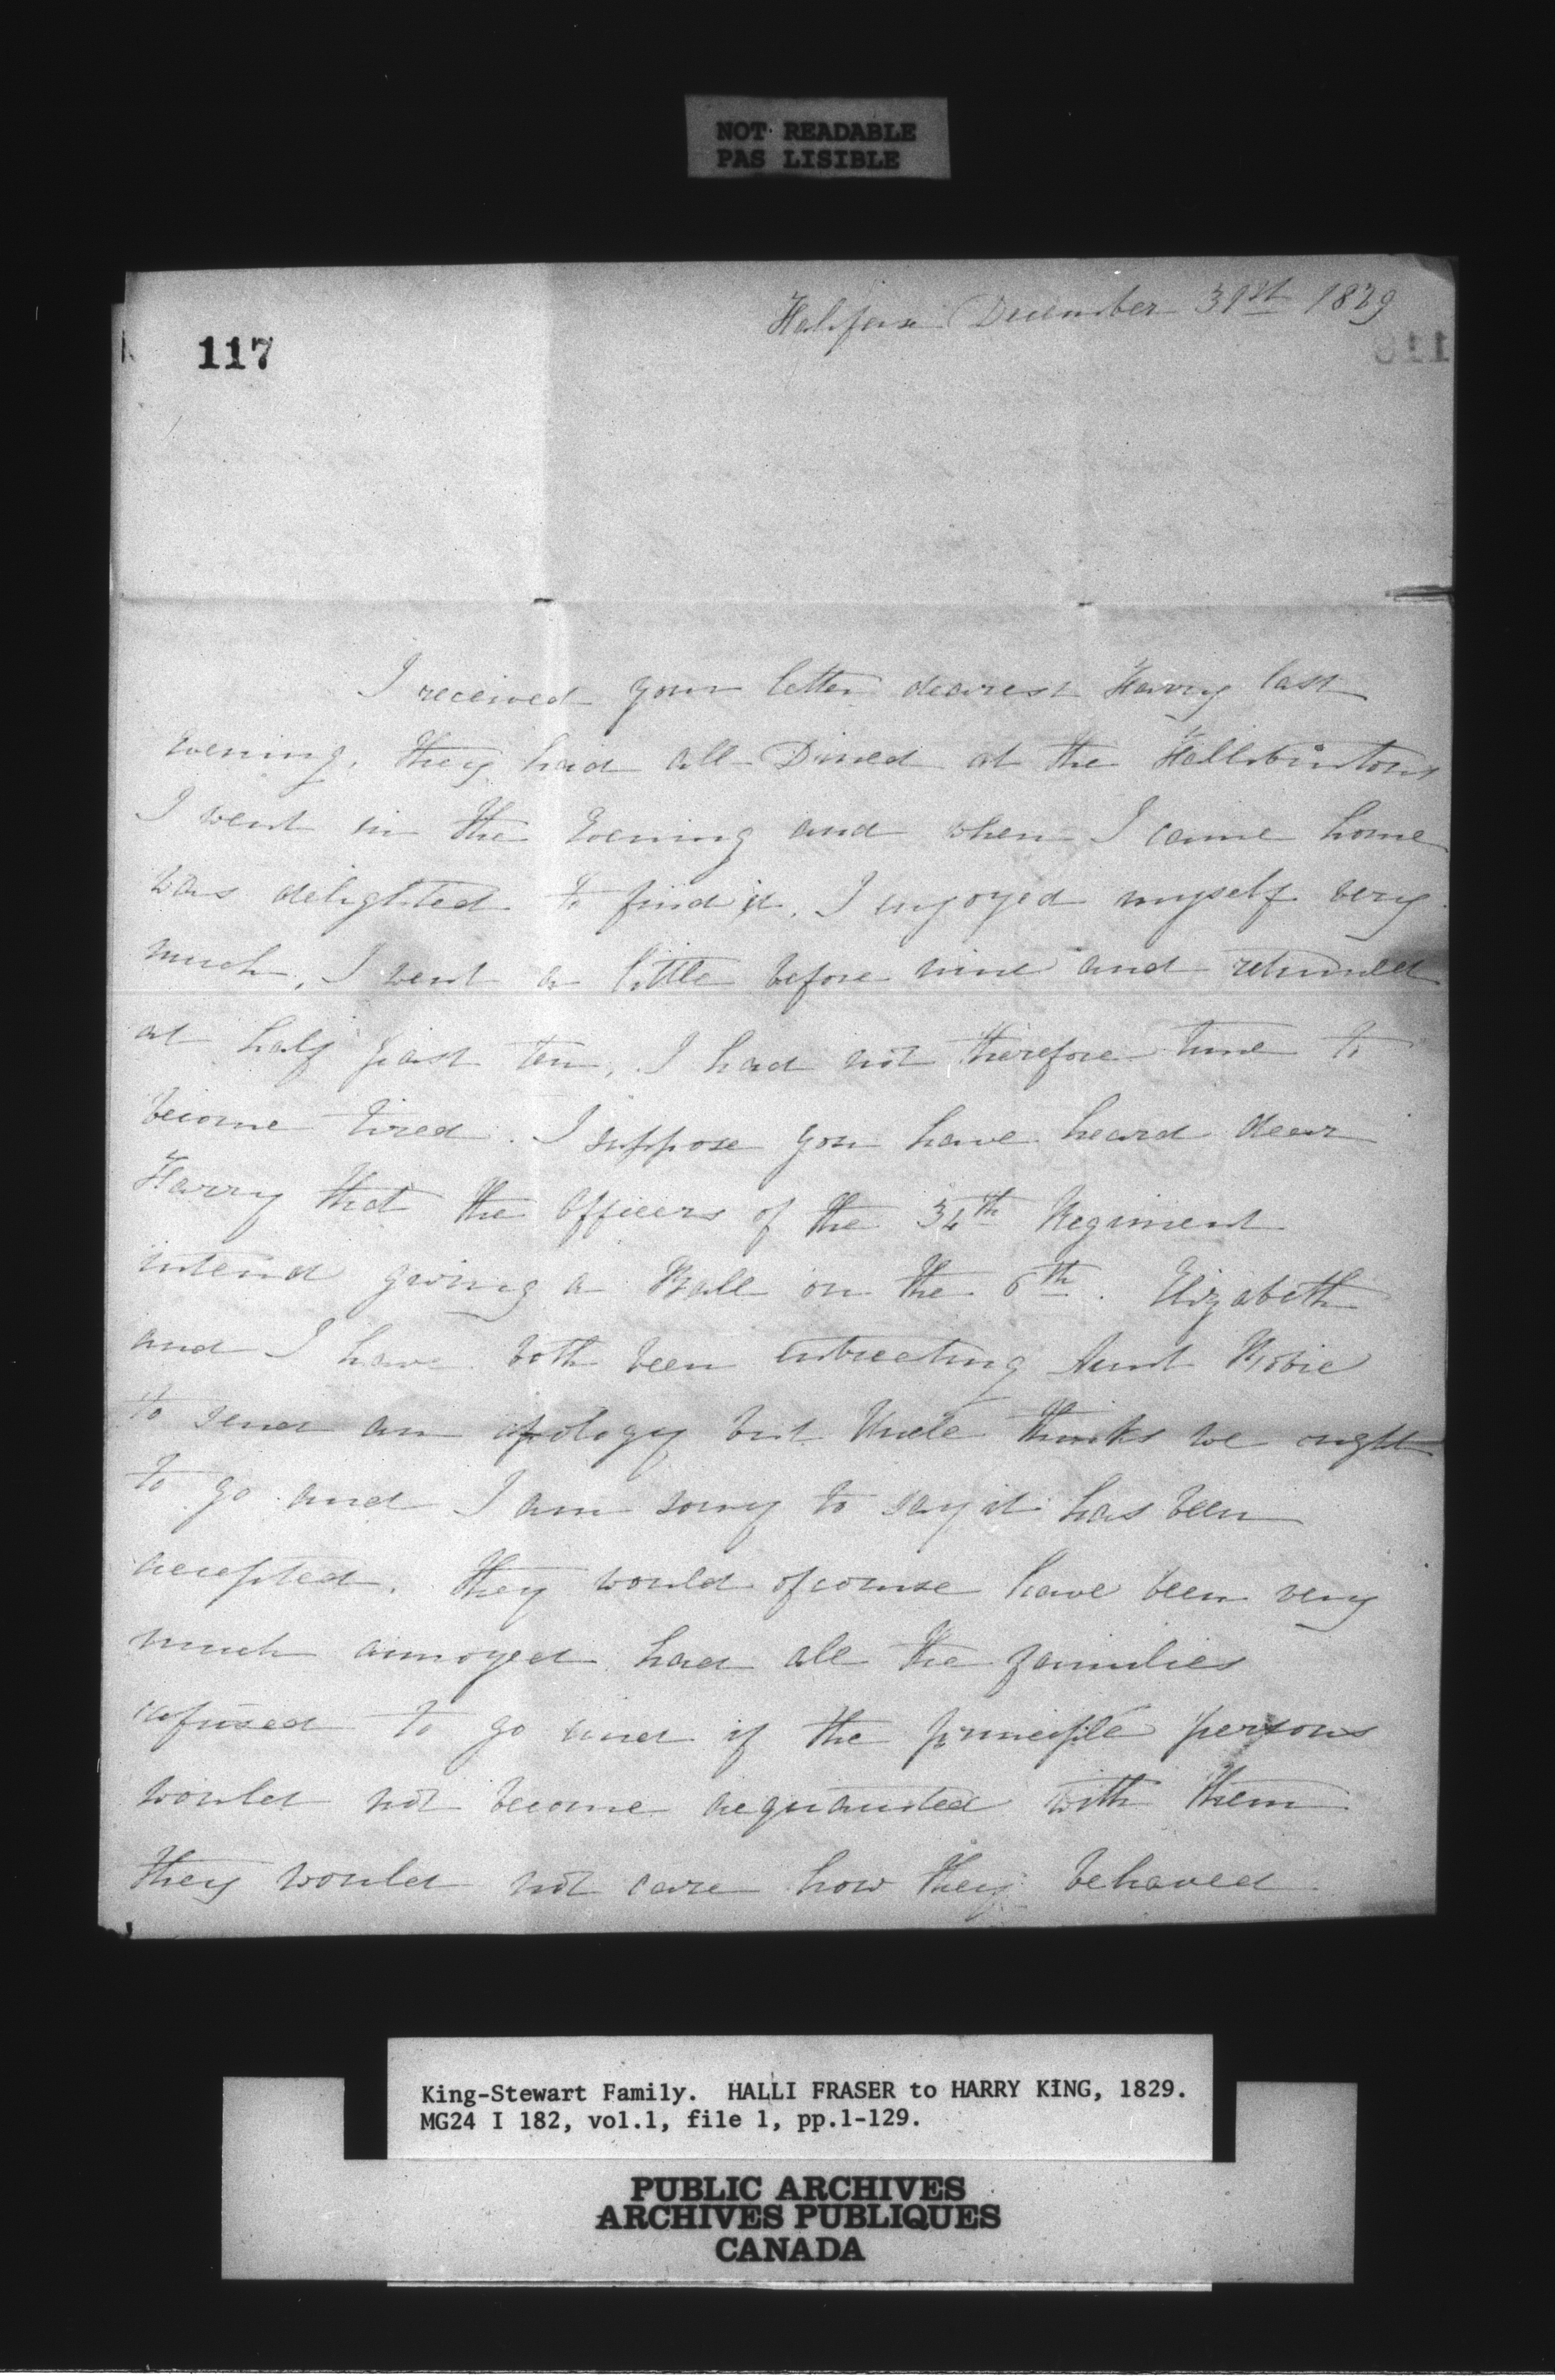 NOT READABLE
PAS LISIBLE
Halifax December 31st 1829
117
I received your letter dearest Harry last
evening, they had all Dined at the Halliburtons
I went in the Evening and when I came home
was delighted to find it, I enjoyed myself very
much, I went a little before nine and returned
at half past ten, I had not therefore time to
become tired. I suppose you have heard dear
Harry that the Officers of the 34th Regiment
intend giving a Ball on the 6th. Elizabeth
and I have both been entreating Aunt Robie
to send an apology but Uncle thinks we ought
to go and I am sorry to say it has been
accepted. they would ofcourse have been very
much annoyed had all the families
refused to go and if the principle persons
would not become acquainted with them
they would not care how they behaved.
King-Stewart Family. HALLI FRASER to HARRY KING, 1829.
MG24 I 182, vol.1, file 1, pp.1-129.
PUBLIC ARCHIVES
ARCHIVES PUBLIQUES
CANADA